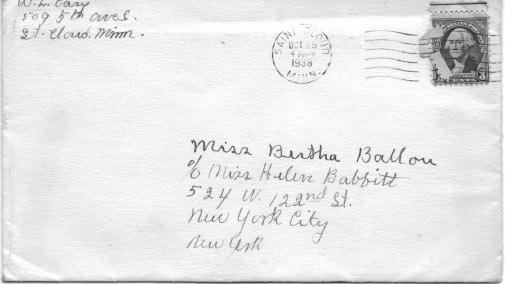 W. L. Cary
509 5th ave S.
St. Cloud. Minn.
SAINT CLOUD
OCT 25
4 30 PM
1938
MINN.
3
Miss Bertha Ballou
c/o Miss Helen Babbitt
524 W. 122nd St.
New York City
New York